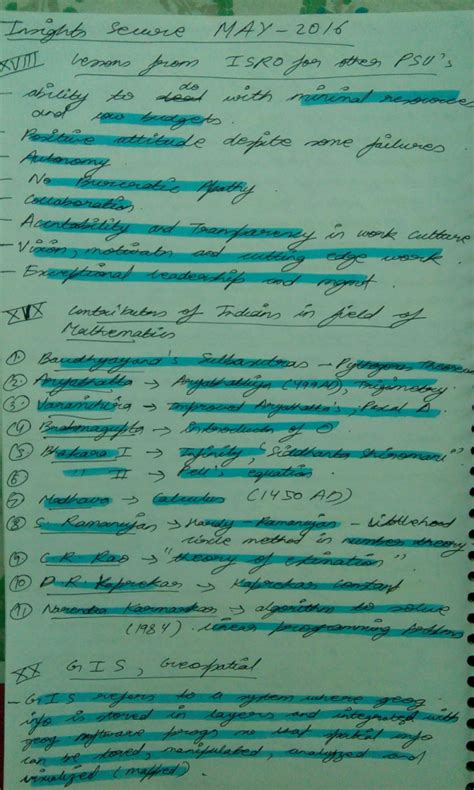 Insights Secure MAY-2016
XVIII Lessons from ISRO for other PSU's
- ability to do with minimal resource
and low budgets.
- Positive attitude despite some failures
- Autonomy
- No Burecratic Apathy
- Collaboration
- Accntability and Transparency in work culture
- Vision, motivatn and cutting edge work.
- Exceptional leadership and mgmt.
XIX Contributors of Indians in field of
Mathematics
① Baudhyayana's Sulbasutras - Pythagoras Theorem
② Aryabhatta → Aryabhatiya (499AD), Trignometry.
③ Varamihira → Improved Aryabhatta's, Pascal Δ
④ Brahmagupta → Introductn of 0
⑤ Bhaskara I → Infinity, "Siddhanta Shiromani"
⑥ " II → Pell's equation.
⑦ Madhava → Calculus (1450 AD)
⑧ S. Ramanujan → Hardy-Ramanujan - Littlewood
circle method in number theory
⑨ C R Rao → "theory of estimation"
⑩ D.R. Kaprekar → Kaprekar constant
⑪ Narendra Karmarkar → algorithm to solve
(1984) linear programming problems
XX GIS, Geospatial
- GIS refers to a system where geog.
info is stored in layers and integrated with
geog software progs so that spatial info
can be stored, manipulated, analyzed and
visualized (mapped).